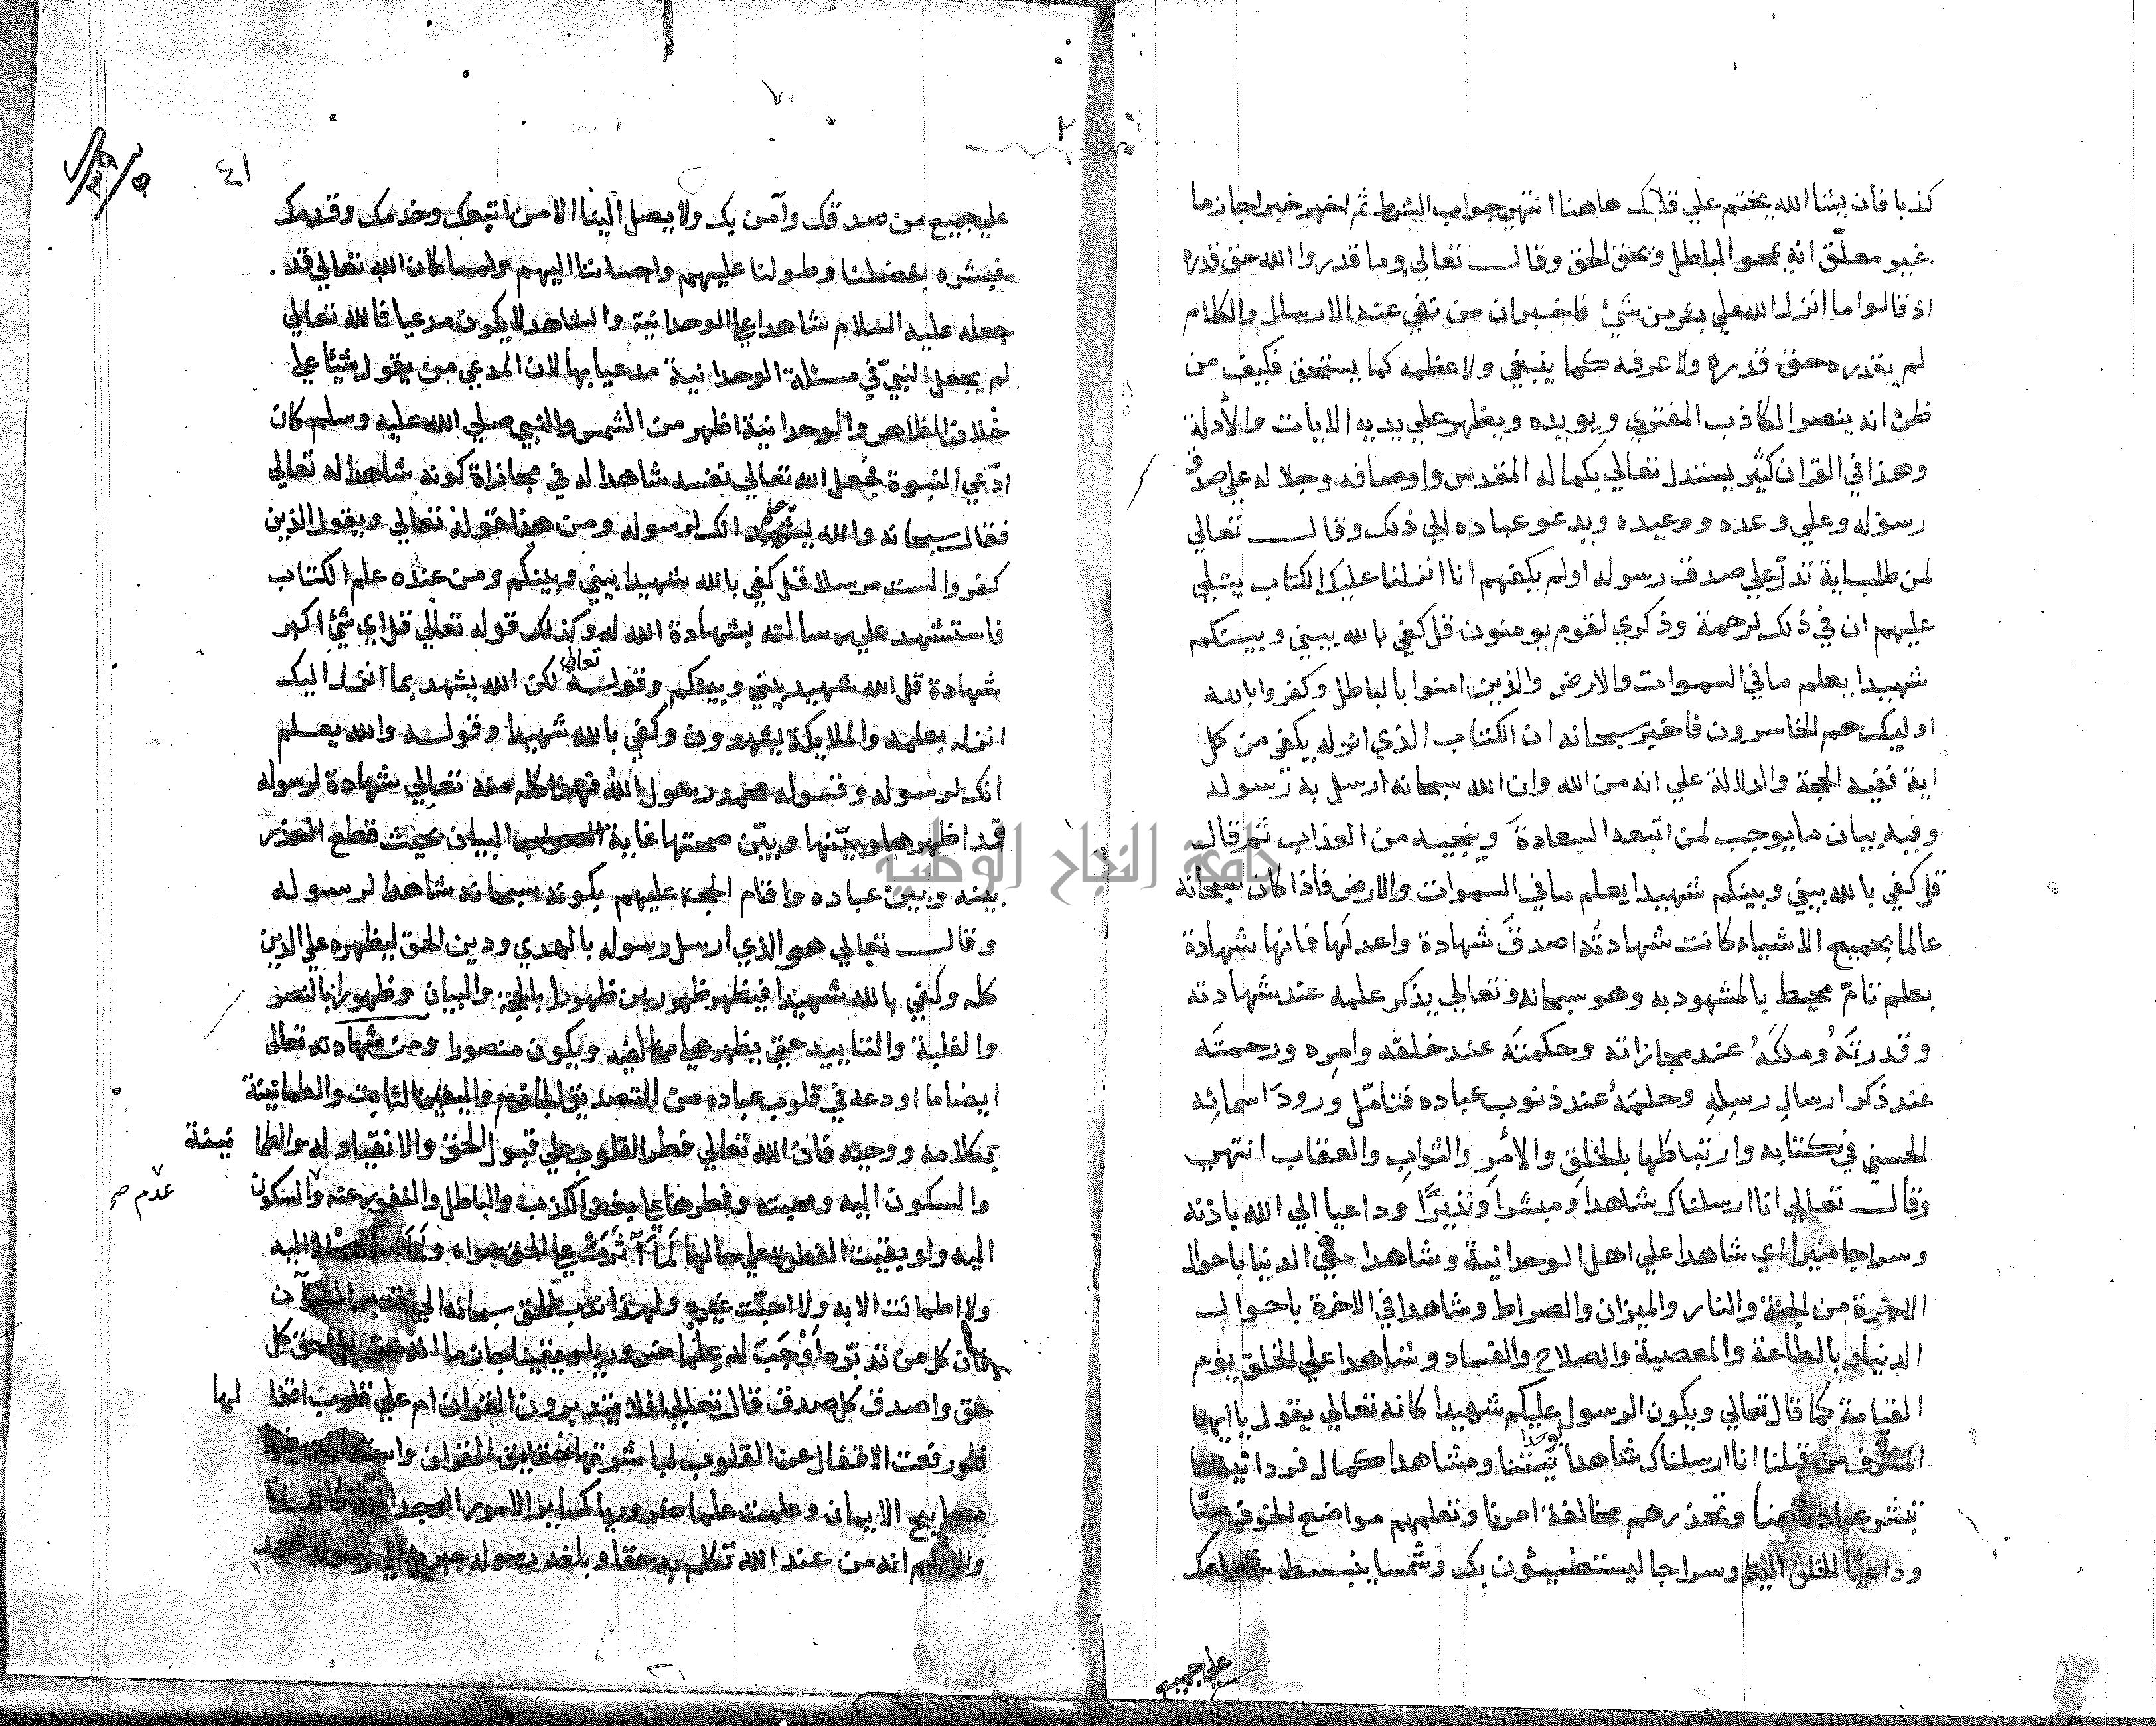 كذبا فان يشا الله يختم علي قلبك هاهنا انتهي جواب الشرط ثم اخبر خبرا جازما
غير معلّق انه يمحو الباطل ويحق الحق وقال تعالي وما قدروا الله حق قدره
اذ قالوا ما انزل الله علي بشر من شئ فاخبر ان من نفي عنه الارسال والكلام
لم يقدره حق قدره ولا عرفه كما ينبغي ولا عظمه كما يستحق فكيف من
ظن انه ينصر الكاذب المفتري ويويده ويظهر علي يديه الايات والأدلة
وهذا في القران كثير يستدل تعالي بكماله المقدس واوصافه وجلاله علي صدق
رسوله وعلي وعده ووعيده ويدعو عباده الي ذلك وقال تعالي
لمن طلب اية تدل علي صدق رسوله اولم يكفهم انا انزلنا عليك الكتاب يتلي
عليهم ان في ذلك لرحمة وذكري لقوم يومنون قل كفي بالله بيني وبينكم
شهيدا يعلم ما في السموات والارض والذين امنوا بالباطل وكفروا بالله
اوليك هم الخاسرون فاخبر سبحانه ان الكتاب الذي انزله يكفي من كل
اية ففيه الحجة والدلالة علي انه من الله وان الله سبحانه ارسل به رسوله
وفيه بيان ما يوجب لمن اتبعه السعادة وينجيه من العذاب ثم قال
قل كفي بالله بيني وبينكم شهيدا يعلم ما في السموات والارض فاذا كان سبحانه
عالما بجميع الاشياء كانت شهادته اصدق شهادة واعدلها فانها شهادة
بعلم تامّ محيط بالمشهود به وهو سبحانه وتعالي يذكر علمه عند شهادته
وقدرتَهُ وملكَهُ عند مجازاته وحكمتَه عند خلقه وامره ورحمتَه
عند ذكر ارسال رسله وحلمَهُ عند ذنوب عباده فتامّل ورودَ اسمائه
الحسني في كتابه وارتباطها بالخلق والأمر والثواب والعقاب انتهي
وقال تعالي انا ارسلناك شاهدا ومبشرا ونذيرًا وداعيا الي الله باذنه
وسراجا منيرا اي شاهدا علي اهل الوحدانية وشاهدا في الدنيا باحوال
الاخرة من الجنة والنار والميزان والصراط وشاهدا في الاخرة باحوال
الدنيا وبالطاعة والمعصية والصلاح والفساد وشاهدا علي الخلق يوم
القيامة كما قال تعالي ويكون الرسول عليكم شهيدا كانه تعالي يقول ياايها
المشرّف من قبلنا انا ارسلناك شاهدا ومشاهدا كمال فردانيتنا
تبشر عبادنا عنا وتحذرهم مخالفة امرنا وتعلمهم مواضع الخوف منّا
وداعيًا للخلق الينا وسراجا ليستضيئون بك وشمسا ينبسط شعاعك
علي جميع
٤١
علي جميع من صدقك وآمن بك ولا يصل الينا الا من اتبعك وخدمك وقدمك
فبشره بفضلنا وطولنا عليهم واحساننا اليهم ولما كان الله تعالي قد
جعله عليه السلام شاهدا علي الوحدانية والشاهد لا يكون مدعيا فالله تعالي
لم يجعل النبيّ في مسئلة الوحدانية مدعيا بها لان المدعي من يقول شيئا علي
خلاف الظاهر والوحدانية اظهر من الشمس والنبي صلي الله عليه وسلم كان
ادّعي النبوة فجعل الله تعالي نفسه شاهدا له في مجازاة كونه شاهدا له تعالي
فقال سبحانه والله يعلم انك لرسوله ومن هذا قوله تعالي ويقول الذين
كفروا لست مرسلا قل كفي بالله شهيدا بيني وبينكم ومن عنده علم الكتاب
فاستشهد علي رسالته بشهادة الله له وكذلك قوله تعالي قل اي شئ اكبر
شهادة قل الله شهيد بيني وبينكم وقوله تعالي لكن الله يشهد بما انزل اليك
انزله بعلمه والملايكة يشهدون وكفي بالله شهيدا وقوله والله يعلم
انك لرسوله وقوله محمد رسول الله فهذا كله منه تعالي شهادة لرسوله
قد اظهرها وبيّنها وبيّن صحتها غاية البيان بحيث قطع العذر
بينه وبين عباده واقام الحجة عليهم بكونه سبحانه شاهدا لرسوله
وقال تعالي هو الذي ارسل رسوله بالهدي ودين الحق ليظهره علي الدين
كله وكفي بالله شهيدا فيظهر ظهورين ظهورا بالحجة والبيان وظهورا بالنصر
والغلبة والتاييد حتي يظهر علي مخالفيه ويكون منصورا ومن شهادته تعالي
ايضا ما اودعه في قلوب عباده من التصديق الجازم واليقين الثابت والطمانينة
بكلامه ووحيه فان الله تعالي فطر القلوب علي قبول الحق والانقياد له والطما نينة
والسكون اليه ومحبته وفطرها علي بغض الكذب والباطل والنفور عنه والسكون
عدم صح
اليه ولو بقيت الفطن علي حالها لَمَا آثَرَتْ علي الحق سواه ولما سكنت الا اليه
ولا اطمانت الا به ولا احبّت غيره ولهذا ندب الحق سبحانه الي تدبر القرآن
فان كل من تدبّره اَوْجَبَ له عِلْما ضروريا ويقينا جازما انه حق بل احق كل
حق واصدق كل صدق قال تعالي افلا يتدبرون القران ام علي قلوب اقفا لها
فلو رفعت الاقفال عن القلوب لباشرتها حقايق القران واستنارت فيها
مصابيح الايمان وعلمت علما ضروريا كساير الامور الوجدانية كاللذة
والالم انه من عند الله تكلم به حقا وبلغه رسوله جبريل الي رسوله محمد
جامعة النجاح الوطنية